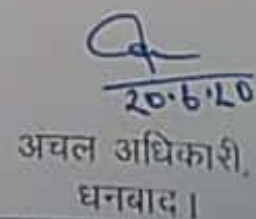 20.6.20
अचल अधिकारी,
धनबाद।